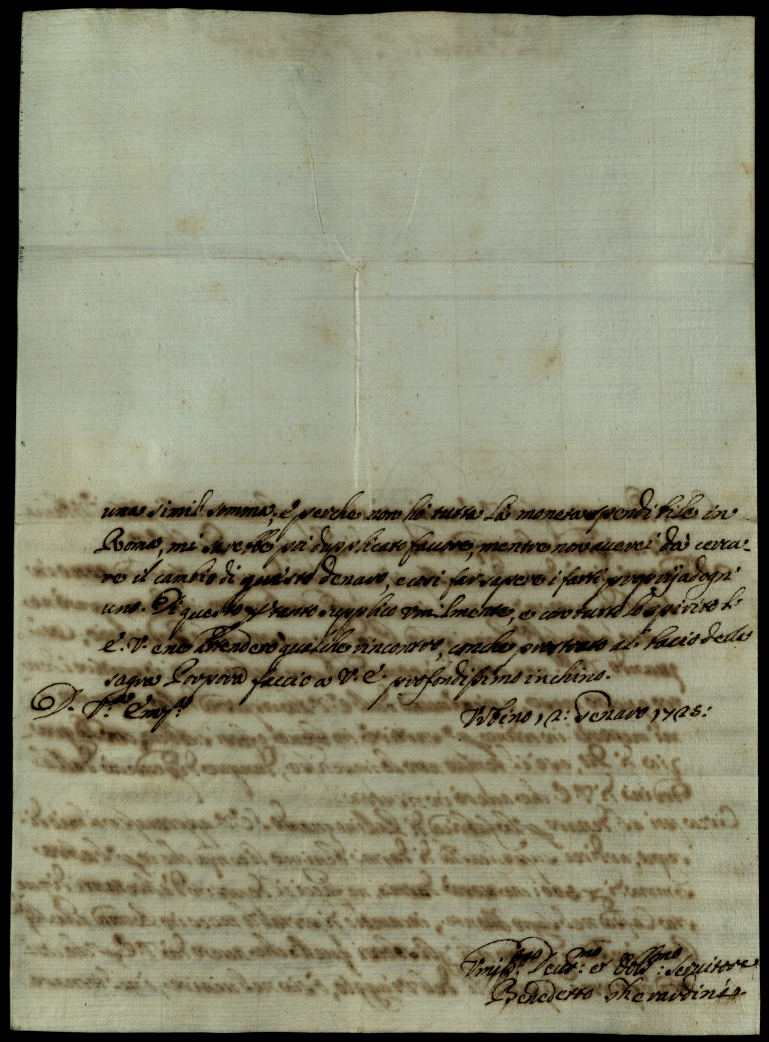 una simil somma, é perche non hò tutta la moneta spendibile in
Roma, mi sarebbe poi dupplicato favore, mentre non averei dà cerca-
re il cambio di questo denaro, e così far sapere i fatti proprij ad ogn'
uno. Di questo per tanto supplico vmilmente, e con tutto lo spirito l'
E. V. e ne attenderò qualche rincontro, con che prostrato al bacio della
sagra Porpora faccio a V. E. profondissimo inchino.
D. V.ra Em.za
Vrbino 12: Genaro 1728:
Vmil.mo Deut.mo et Obb.mo: Seruitore
Benedetto Gherardini